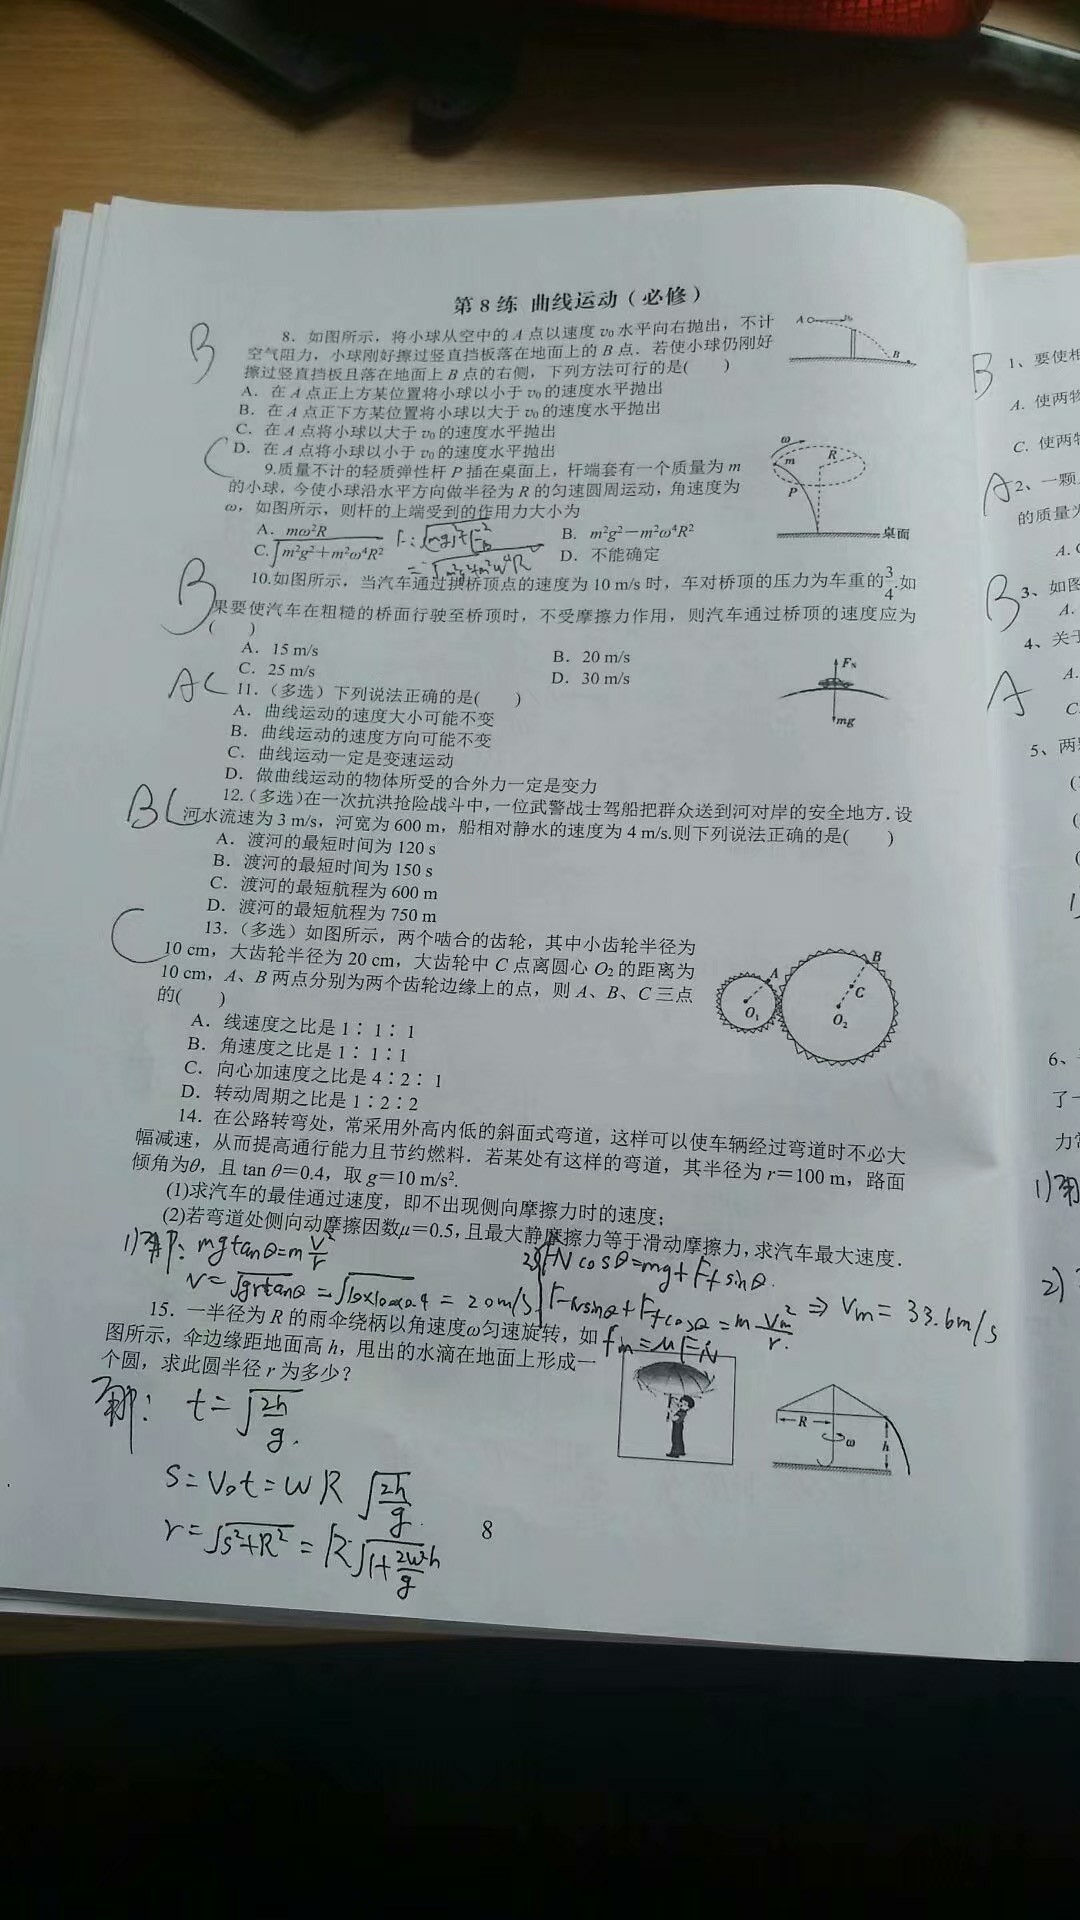 第 8 练 曲线运动（必修）
B
8．如图所示，将小球从空中的 A 点以速度 v₀ 水平向右抛出，不计
空气阻力，小球刚好擦过竖直挡板落在地面上的 B 点．若使小球仍刚好
擦过竖直挡板且落在地面上 B 点的右侧，下列方法可行的是(　　)
A．在 A 点正上方某位置将小球以小于 v₀ 的速度水平抛出
B．在 A 点正下方某位置将小球以大于 v₀ 的速度水平抛出
C．在 A 点将小球以大于 v₀ 的速度水平抛出
D．在 A 点将小球以小于 v₀ 的速度水平抛出
A
B
C
9.质量不计的轻质弹性杆 P 插在桌面上，杆端套有一个质量为 m
的小球，今使小球沿水平方向做半径为 R 的匀速圆周运动，角速度为
ω，如图所示，则杆的上端受到的作用力大小为
A．mω²R
B．m²g²－m²ω⁴R²
C.√m²g²＋m²ω⁴R²
D．不能确定
ω
m
R
P
桌面
B
10.如图所示，当汽车通过拱桥顶点的速度为 10 m/s 时，车对桥顶的压力为车重的3/4.如
果要使汽车在粗糙的桥面行驶至桥顶时，不受摩擦力作用，则汽车通过桥顶的速度应为
(　　)
A．15 m/s
B．20 m/s
C．25 m/s
D．30 m/s
F_N
mg
AC
11．（多选）下列说法正确的是(　　)
A．曲线运动的速度大小可能不变
B．曲线运动的速度方向可能不变
C．曲线运动一定是变速运动
D．做曲线运动的物体所受的合外力一定是变力
BC
12.（多选）在一次抗洪抢险战斗中，一位武警战士驾船把群众送到河对岸的安全地方．设
河水流速为 3 m/s，河宽为 600 m，船相对静水的速度为 4 m/s.则下列说法正确的是(　　)
A．渡河的最短时间为 120 s
B．渡河的最短时间为 150 s
C．渡河的最短航程为 600 m
D．渡河的最短航程为 750 m
C
13．（多选）如图所示，两个啮合的齿轮，其中小齿轮半径为
10 cm，大齿轮半径为 20 cm，大齿轮中 C 点离圆心 O₂ 的距离为
10 cm，A、B 两点分别为两个齿轮边缘上的点，则 A、B、C 三点
的(　　)
A．线速度之比是 1∶1∶1
B．角速度之比是 1∶1∶1
C．向心加速度之比是 4∶2∶1
D．转动周期之比是 1∶2∶2
A
B
C
O₁
O₂
14．在公路转弯处，常采用外高内低的斜面式弯道，这样可以使车辆经过弯道时不必大
幅减速，从而提高通行能力且节约燃料．若某处有这样的弯道，其半径为 r＝100 m，路面
倾角为θ，且 tan θ＝0.4，取 g＝10 m/s².
(1)求汽车的最佳通过速度，即不出现侧向摩擦力时的速度；
(2)若弯道处侧向动摩擦因数μ＝0.5，且最大静摩擦力等于滑动摩擦力，求汽车最大速度．
1)解：mgtanθ=m v²/r
v=√grtanθ=√10×100×0.4=20m/s
2) FNcosθ=mg+Ffsinθ
FNsinθ+Ffcosθ=m Vm²/r ⇒ Vm=33.6m/s
fm=μFN
15．一半径为 R 的雨伞绕柄以角速度ω匀速旋转，如
图所示，伞边缘距地面高 h，甩出的水滴在地面上形成一
个圆，求此圆半径 r 为多少？
R
ω
h
解：t=√2h/g
s=V₀t=ωR√2h/g
r=√s²+R²=R√1+2ω²h/g
8
B
1、要使相
A. 使两物
C. 使两物
A
2、一颗
的质量为
B
3、如图
A.
4、关于
A
A.
C.
5、两
6、
了一
力常
1)解
2)